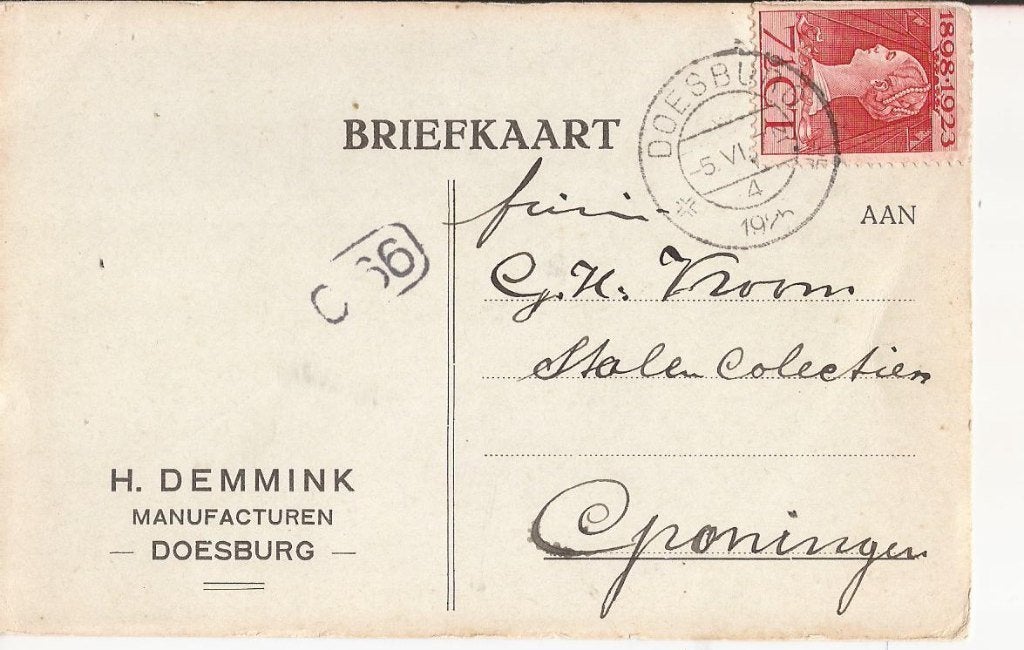 1898·1923
7½ CT
DOESBURG
-5.VI.
4
192
BRIEFKAART
AAN
firma
G.H. Vroom
Stalen Colectien
Groningen
66
H. DEMMINK
MANUFACTUREN
— DOESBURG —